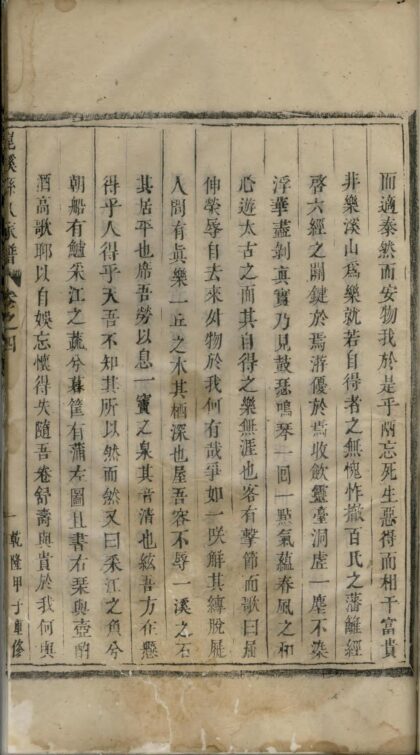 而適泰然而安物我於是乎兩忘死生惡得而相干富貴
非樂溪山爲樂就若自得者之無愧怍撤百氏之藩籬經
啓六經之關鍵於焉游優於焉收飲靈臺洞虛一塵不染
浮華盡剝真實乃見鼓瑟鳴琴一回一點氣蘊春風之和
心遊太古之面其自得之樂無涯也客有擊節而歌曰屈
伸榮辱自去來外物於我何有哉爭如一咲解其縛脫屣
人間有真樂一丘之木其栖深也屋吾容不辱一溪之石
其居平也席吾勞以息一竇之泉其音清也絃吾方在懸
得乎人得乎天吾不知其所以然而然又曰采江之魚兮
朝船有鱸采江之蔬兮暮筐有蒲左圖且書右琹與壺酌
酒高歌聊以自娛忘懷得失隨吾卷舒壽與貴於我何與
溪 氏家譜 卷之四 一 乾隆甲子重修